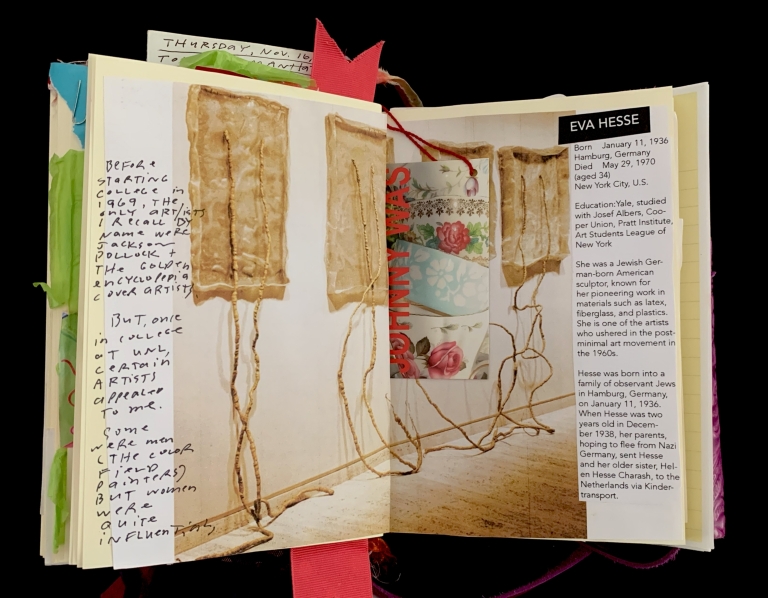 THURSDAY, NOV. 16,
BEFORE
STARTING
COLLEGE in
1969, THE
only ARTISTS
I RECALL BY
NAME WERE
JACKSON
POLLOCK +
THE GOLDEN
ENCYCLOPEDIA
COVER ARTISTS
BUT, once
in college
AT UNL,
CERTAIN
ARTISTS
appealed
TO me.
Some
WERE men
(THE COLOR
FIELD
PAINTERS)
BUT women
WERE
QUITE
INFLUENTIAL
JOHNNY WAS
EVA HESSE
Born January 11, 1936
Hamburg, Germany
Died May 29, 1970
(aged 34)
New York City, U.S.
Education:Yale, studied
with Josef Albers, Coo-
per Union, Pratt Institute,
Art Students League of
New York
She was a Jewish Ger-
man-born American
sculptor, known for
her pioneering work in
materials such as latex,
fiberglass, and plastics.
She is one of the artists
who ushered in the post-
minimal art movement in
the 1960s.
Hesse was born into a
family of observant Jews
in Hamburg, Germany,
on January 11, 1936.
When Hesse was two
years old in Decem-
ber 1938, her parents,
hoping to flee from Nazi
Germany, sent Hesse
and her older sister, Hel-
en Hesse Charash, to the
Netherlands via Kinder-
transport.